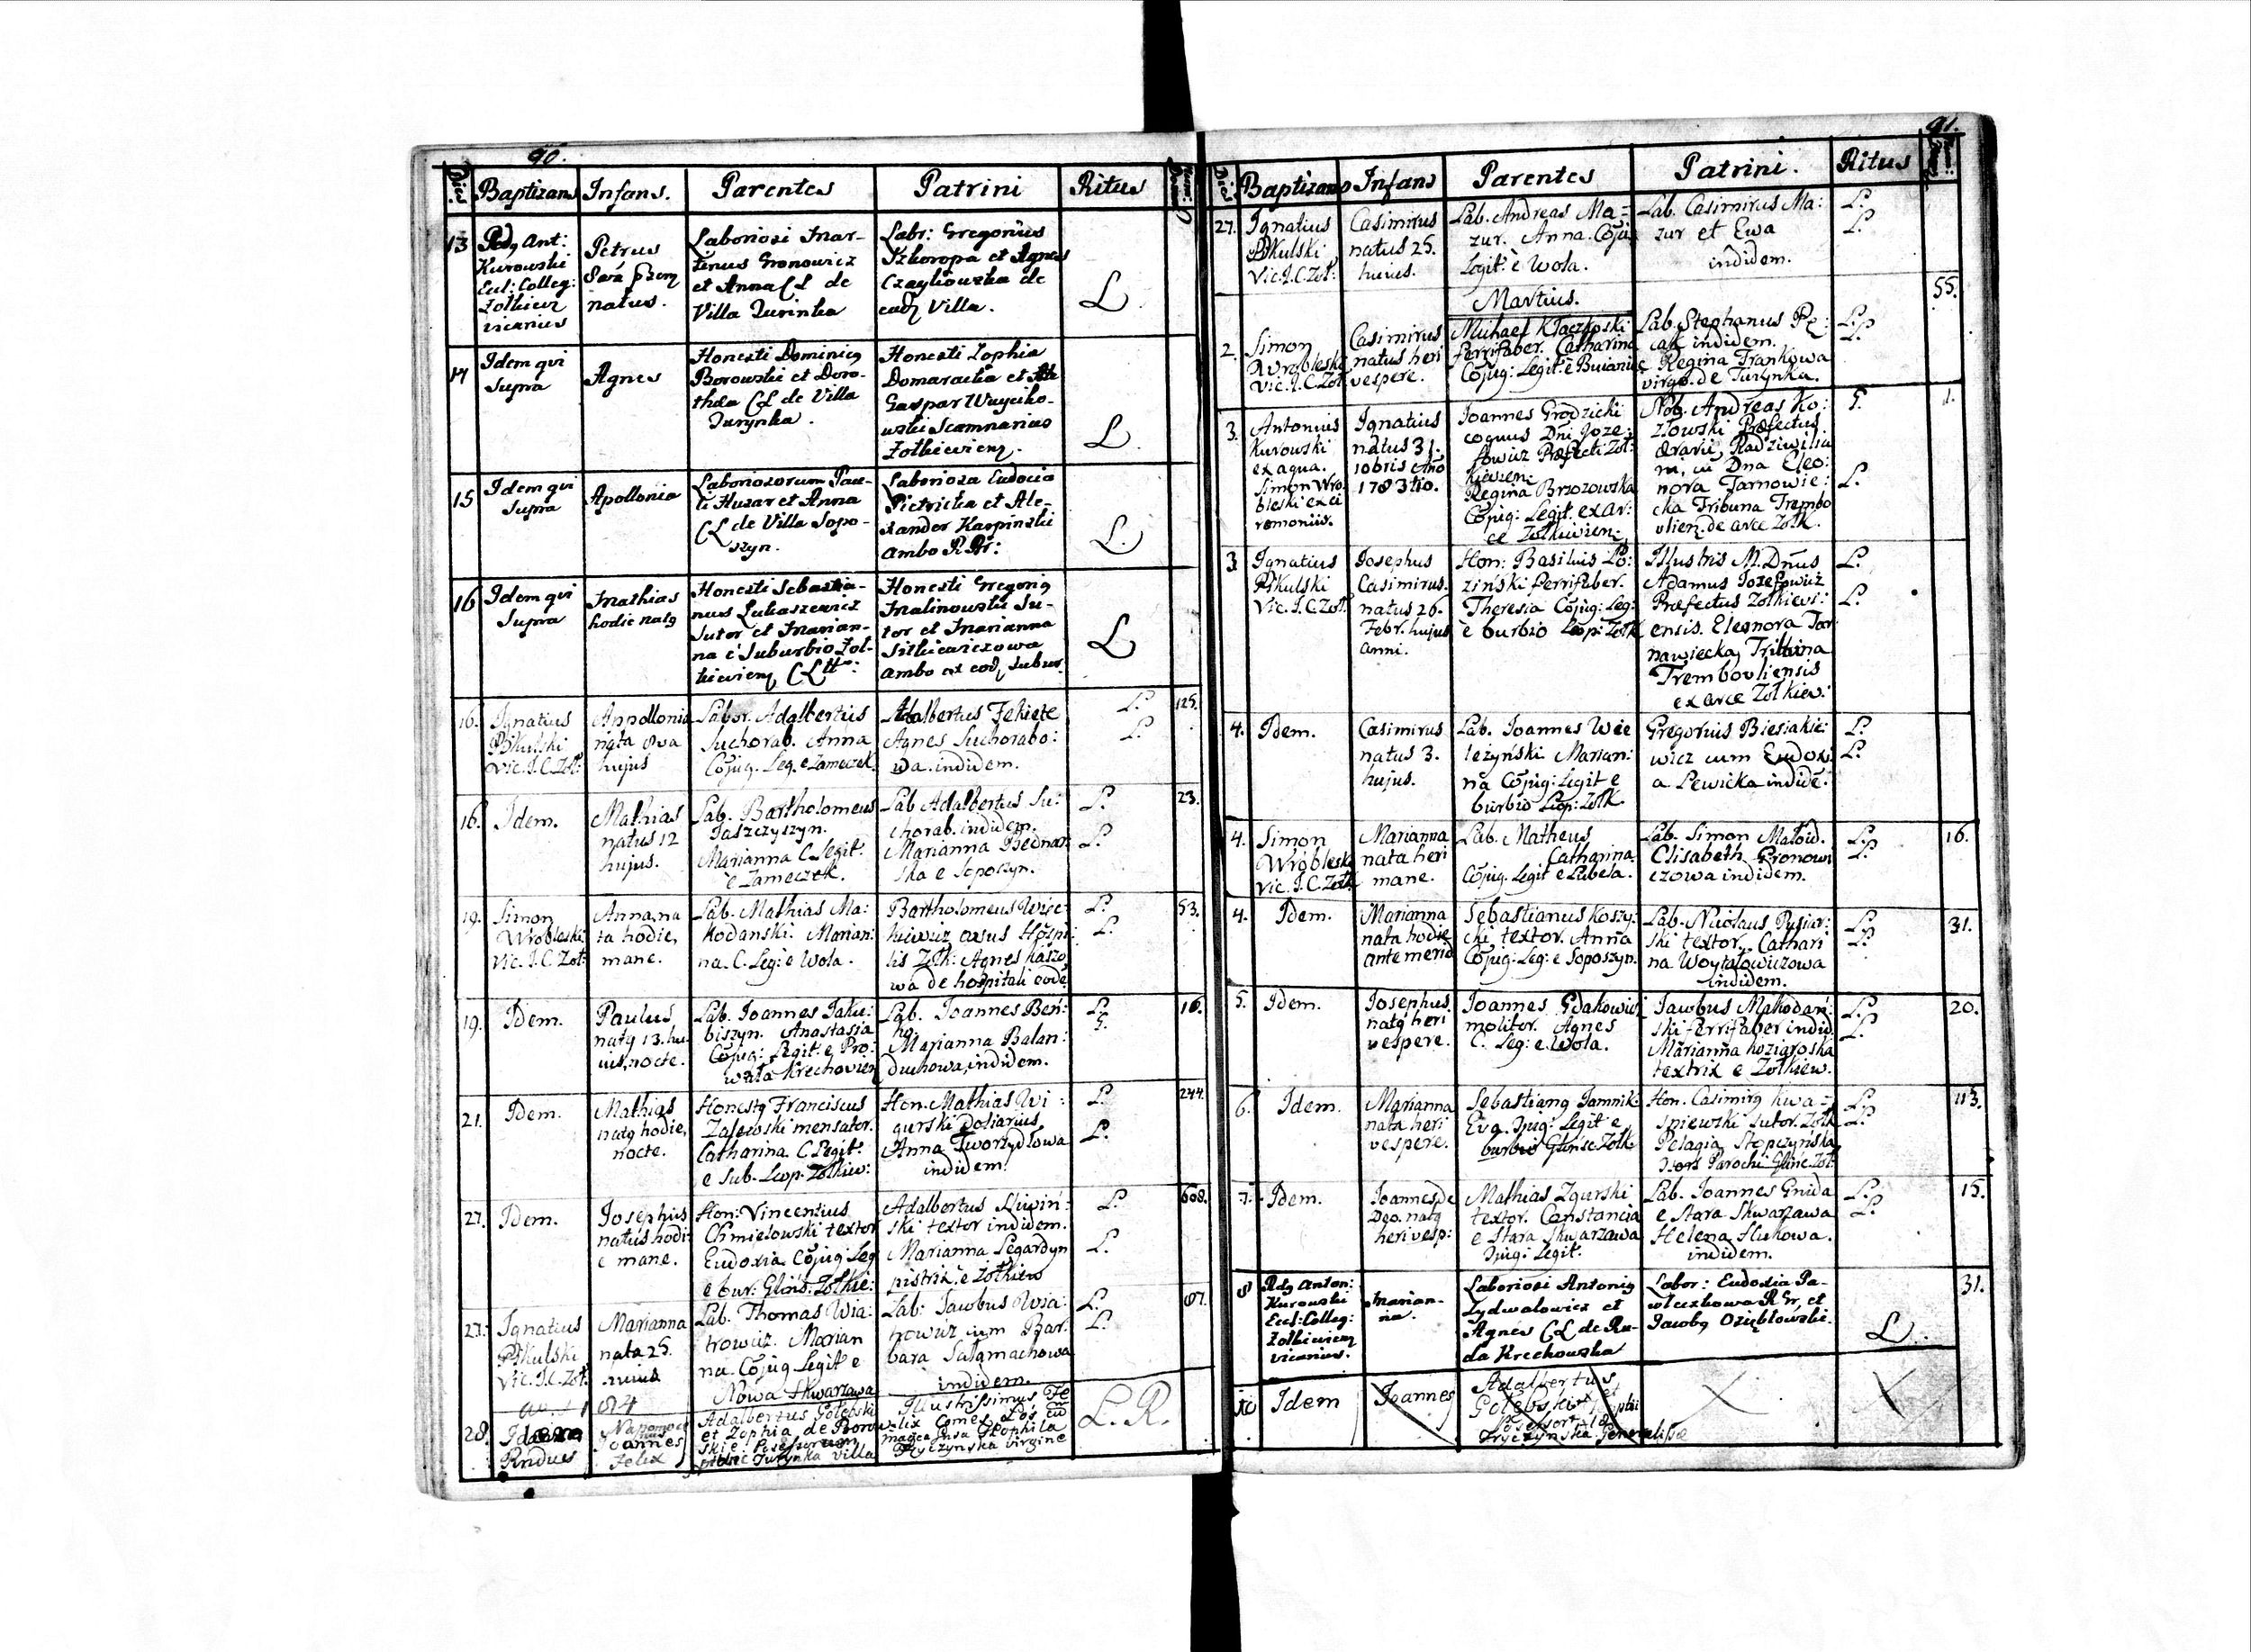 90.
Dies. Baptizans Infans. Parentes Patrini Ritus
13 Rdq Ant: Kurowski Eccl: Colleg: Zolkiew vicarius
Petrus 8va natus.
Laboriosi Mar-
tinus Gronowicz
et Anna CL de
Villa Turinka
Labr: Gregorius
Szkoropa et Agnes
de
eadq Villa.
L
14 Idem qui
Supra
Agnes
Honesti Dominicq
Borowski et Doro-
thea CL de Villa
Turynka.
Honesti Zophia
Domaracka et
Gaspar Woyciko-
wski Scamnarius
Zolkieviens.
L.
15 Idem qui
Supra
Apollonia
Laboriosorum Pau-
li Huzar et Anna
CL de Villa Sopo-
szyn.
Laboriosa Eudocia
Pietricka et Ale-
xander Karpinski
ambo R. Gr:
L.
16 Idem qui
Supra
Mathias
hodie natq
Honesti Sebastia-
nus Lukaszewicz
Sutor et Marian-
na e Suburbio Zol-
kieviens CLtt:
Honesti Gregoriq
Malinowski Su-
tor et Marianna
Sitkiewiczowa
ambo ex eodq Subur.
L
16. Ignatius
Pikulski
Vic. I. C. Zol:
Appollonia
nata 8va
hujus
Labor. Adalbertus
Suchorab. Anna
Cõjug. Leg. e Zameczek.
Adalbertus Fekiete
Agnes Suchorabo:
wa. indidem.
L.
L.
125.
16. Idem.
Mathias
natus 12
hujus.
Lab. Bartholomeus
Jaszczyszyn.
Marianna C. Legit.
e Zameczek.
Lab Adalbertus Su:
chorab. indidem.
Marianna Bednar:
ska e Soposzyn.
L.
L.
23.
19. Simon
Wrobleski
Vic. I. C. Zol:
Anna, na
ta hodie,
mane.
Lab. Mathias Ma:
kodanski. Marian:
na. C. Leg: e Wola.
Bartholomeus Wise:
kiewicz Hospi:
lis Zolk: Agnes Kaszo
wa de hospitali eodẽ
L.
L.
53.
19. Idem.
Paulus
natq 13. hu
ius, nocte.
Lab. Joannes Jaku:
biszyn. Anastasia
Cõjug: Legit: e Pro:
wala Krechovien
Lab. Joannes Ben:
ko.
Marianna Balan:
duchowa, indidem.
L.
G.
16.
21. Idem.
Mathias
natq hodie,
nocte.
Honestq Franciscus
Zalewski mensator.
Catharina. C. Legit:
e Sub. Leop. Zolkiew:
Hon. Mathias Wi:
gurski doliarius
Anna Tworzydlowa
indidem.
L.
L.
244.
27. Idem.
Josephus
natus hodi:
e mane.
Hon: Vincentius
Chmielowski textor
Eudoxia Cõjug: Leg
e bur: Glins. Zolkie:
Adalbertus Sliwin:
ski textor indidem.
Marianna Legardyn
pistrix, e Zolkiew
L.
L.
608.
27. Ignatius
Pikulski
Vic. I. C. Zol:
Marianna
nata 25.
Lab. Thomas Wia:
trowicz. Marian
na. Cõjug Legit e
Nowa Skwarzawa
Lab: Jacobus Wia:
trowicz cum Bar:
bara Salamachowa
indidem.
L.
L.
67.
28. Idem
Joannes
Felix
Adalbertus Golebski
et Zophia de Borow
skie
Turynka villa
Illustrissimus Fe
lix Comes Los
Theophila
Tryczynska virgine
L. R.
91.
Dies. Baptizans Infans Parentes Patrini. Ritus
27. Ignatius
Pikulski
Vic. I. C. Zol:
Casimirus
natus 25.
hujus.
Lab. Andreas Ma:
zur. Anna. Cõju:
Legit: e Wola.
Lab. Casimirus Ma:
zur et Ewa
indidem.
L.
L.
Martius.
2. Simon
Wrobleski
Vic. I. C. Zol
Casimirus
natus heri
vespere.
Michael Klaczkoski
ferrifaber. Catharina
Cõjug: Legit: e
Lab. Stephanus Pę:
cak indidem.
Regina Frankowa
virgo. de Turynka.
L.
L.
55.
3. Antonius
Kurowski
ex aqua.
Simon Wro
bleski ex ce
remoniis.
Ignatius
natus 31.
10bris Año
1783tio.
Joannes Grodzicki
coquus Dñi Joze:
fowicz Præfecti Zol:
kiewien:
Regina Brzozowska
Cõjug: Legit. ex ar:
ce Zolkiewien:
Nob. Andreas Ko:
zlowski Præfectus
ærarii Radzivilia
cũ Dna Eleo:
nora Tarnowie:
cka Tribuna Trembo
vlien. de arce Zolk.
G.
L.
1.
3 Ignatius
Pikulski
Vic. I. C. Zol:
Josephus
Casimirus.
natus 26.
Febr. hujus
anni.
Hon: Basilius Lo:
zinski ferrifaber.
Theresia Cõjug: Leg:
e burbio Leop: Zolk
Illustris M. Dñus
Adamus Jozefowicz
Præfectus Zolkievi:
ensis. Eleonora Tar
nawiecka, Tribuna
Trembovliensis
ex arce Zolkiew:
L.
L.
4. Idem.
Casimirus
natus 3.
hujus.
Lab. Joannes Wie
lezynski Marian:
na Cõjug: Legit e
burbio Leop: Zolk.
Gregorius Biesiakie:
wicz cum Eudoxi
a Lewicka indidẽ.
L.
L.
4. Simon
Wrobleski
Vic. I. C. Zolk
Marianna
nata heri
mane.
Lab. Matheus
Catharina
Cõjug. Legit e Lubela.
Lab. Simon Matow.
Elisabeth Gronowi
czowa indidem.
L.
L.
16.
4. Idem.
Marianna
nata hodie
ante merid
Sebastianus Koszy:
cki, textor. Anna
Cõjug: Leg: e Soposzyn.
Lab. Nicolaus Pusiar:
ski textor. Cathari
na Woytalowiczowa
indidem.
L.
L.
31.
5. Idem.
Josephus
natq heri
vespere.
Joannes Gdakowicz
molitor. Agnes
C. Leg: e Wola.
Jacobus Makodan:
ski ferrifaber indid.
Marianna Koziaroska
textrix e Zolkiew.
L.
L.
20.
6. Idem.
Marianna
nata heri
vespere.
Sebastianq Jamnik.
Eva. Jug: Legit e
burbio Glinsc Zolk.
Hon. Casimirq Kwa=
sniewski sutor. Zolk
Pelagia Stopczynska
Parochi Glinc. Zol:
L.
L.
113.
7. Idem.
Joannes de
Deo. natq
heri vesp:
Mathias Zgurski
textor. Constancia
e Stara Skwarzawa
Jug: Legit:
Lab. Joannes Gnida
e Stara Skwarzawa
Helena Hukowa.
indidem.
L.
L.
15.
8 Rdq Anton:
Kurowski
Eccl: Colleg:
Zolkieviens
vicarius.
Marian-
na.
Laboriosi Antoniq
Zydwalowicz et
Agnes CL de Ru-
da Krechowska
Labor: Eudoxia Pa-
wluczkowa R Gr, et
Jacobq Oziblowski.
L.
31.
10 Idem
Joannes
Adalbertus
Golebski et
Tryczynska